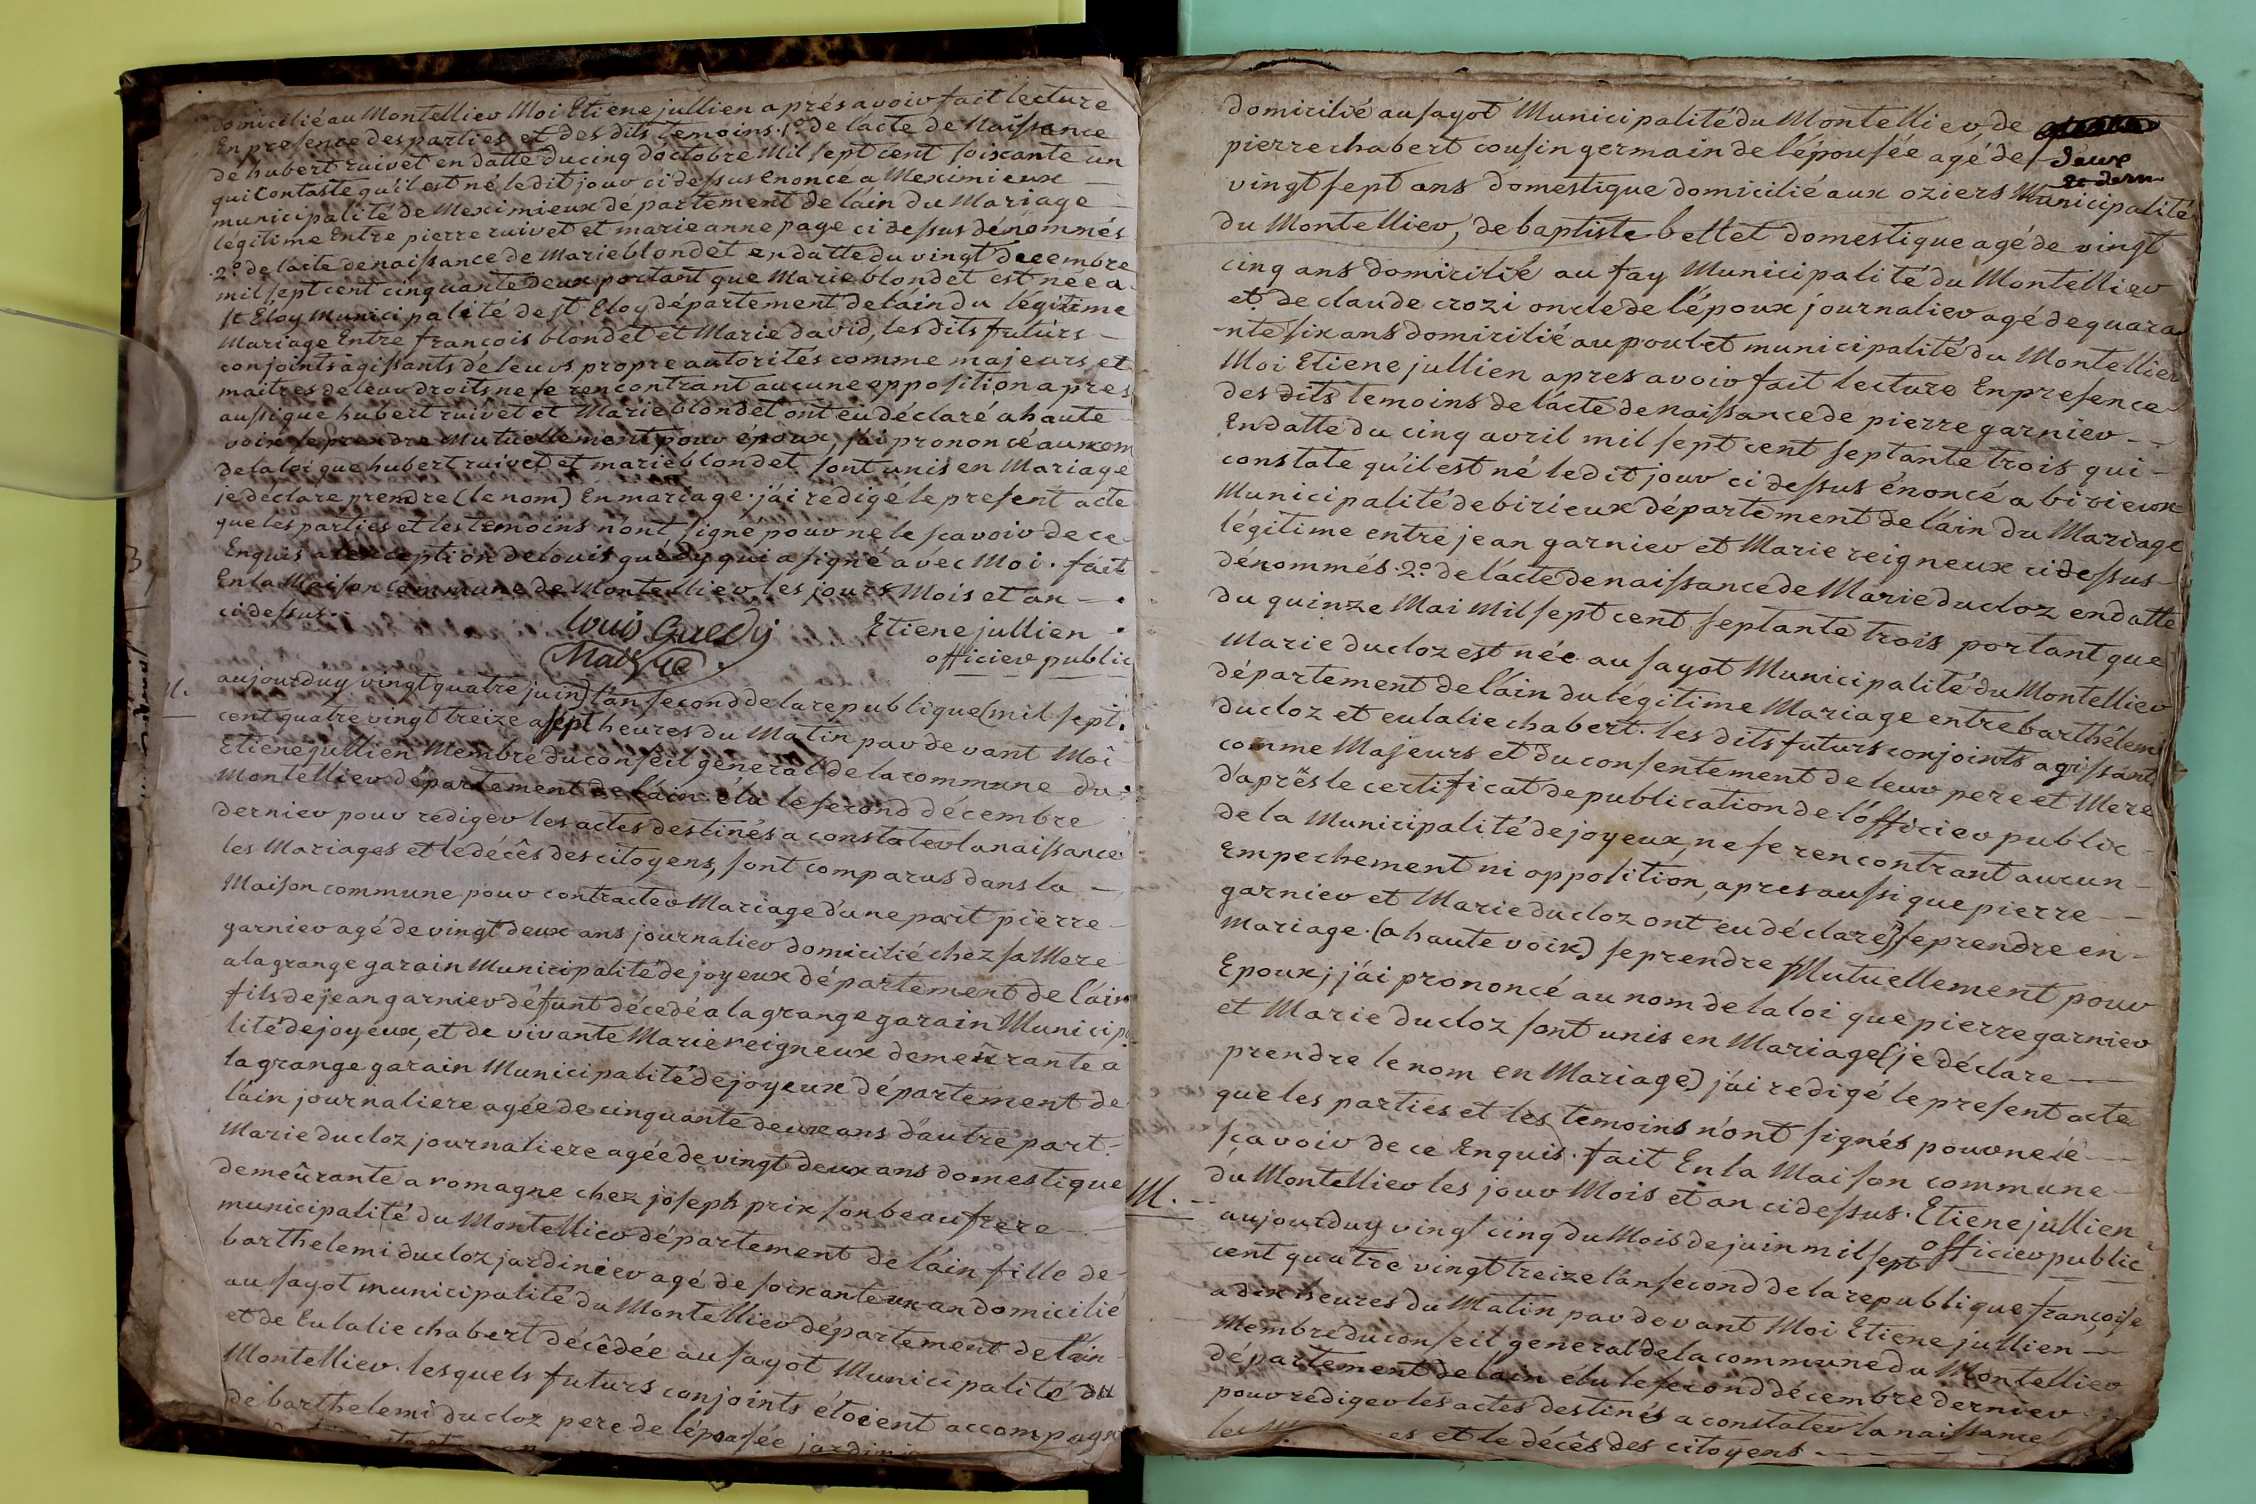 domicilié au Montellier Moi Etiene jullien aprés avoir fait lecture
En presence des parties et des dits temoins. 1.° de lacte de Naissance
de hubert ruivet en datte du cinq d'octobre Mil sept cent soixante un
qui Contaste qu'il est né ledit jour ci dessus enonce a Meximieux
municipalité de Meximieux département de láin du Mariage
legitime Entre pierre ruivet et marie anne page ci dessus dénommés
2.° de lacte de naissance de Marie blondet en datte du vingt Decembre
mil sept cent cinquante deux portant que Marie blondet est née a
st Eloy Municipalité de st Eloy département de láin du légitime
Mariage Entre francois blondet et Marie david, les dits futurs
conjoints agissants de leurs propre autorités comme majeurs et
maitres de leur droits ne se rencontrant aucune opposition apres
aussi que hubert ruivet et Marie blondet ont eu déclaré a haute
voix se prendre Mutuellement pour époux, j'ai prononcé au nom
de la loi que hubert ruivet et marie blondet sont unis en Mariage
je déclare prendre (le nom) En mariage. j'ai rédigé le present acte
que les parties et les temoins n'ont signé pour ne le scavoir de ce
Enquis a lexception de louis guedy qui a signé avéc Moi. fait
En la Maison Commune de Montellier les jours Mois et an
ci dessus.
louis Guedy Etiene jullien
Maire officier public
M.
aujourduy vingt quatre juin lán second de la republique (mil sept
cent quatre vingt treize a sept heures du Matin par devant Moi
Etiene jullien Membre du conseil general de la commune du
Montellier département de láin élu le second décembre
dernier pour rédiger les actes destinés a constater la naissance
les Mariages et le décês des citoyens, sont comparus dans la
Maison commune pour contracter Mariage d'une part pierre
garnier agé de vingt deux ans journalier domicilié chez sa Mere
a la grange garain Municipalité de joyeux département de láin
fils de jean garnier défunt décedé a la grange garain Municipa
lité de joyeux, et de vivante Marie reigneux demeûrante a
la grange garain Municipalité de joyeux département de
láin journaliere agée de cinquante deux ans d'autre part.
Marie ducloz journaliere agée de vingt deux ans domestique
demeûrante a romagne chez joseph prix son beau frere
municipalité du Montellier département de láin fille de
barthelemi ducloz jardinier agé de soixante un an domicilié
au fayot municipalité du Montellier département de láin
et de Eulalie chabert décêdée au fayot Municipalité du
Montellier. lesquels futurs conjoints étoient accompagn
de barthelemi ducloz pere de l'épousée jardinie
domicilié au fayot Municipalité du Montellier, de
deux
pierre chabert cousin germain de lépousée agé de
vingt sept ans domestique domicilié aux oziers Municipalité
du Montellier, de baptiste bettet domestique agé de vingt
cinq ans domicilié au fay Municipalité du Montellier
et de claude crozi oncle de lépoux journalier agé de quara
nte six ans domicilié au poulet municipalité du Montellier
Moi Etiene jullien apres avoir fait lecture En presence
des dits temoins de lácte de naissance de pierre garnier
En datte du cinq avril mil sept cent septante trois qui
constate qu'il est né ledit jour ci dessus énoncé a birieux
Municipalité de birieux département de láin du Mariage
légitime entre jean garnier et Marie reigneux ci dessus
dénommés. 2.° de lácte de naissance de Marie ducloz en datte
du quinze Mai Mil sept cent septante trois portant que
Marie ducloz est née au fayot Municipalité du Montellier
département de láin du légitime Mariage entre barthélemi
ducloz et eulalie chabert. les dits futurs conjoints agissant
comme Majeurs et du consentement de leur pere et Mere
d'aprês le certificat de publication de lófficier public
de la Municipalité de joyeux, ne se rencontrant aucun
Empechement ni oppolition, apres aussi que pierre
garnier et Marie ducloz ont eu déclaré se prendre en
mariage. (a haute voix) se prendre Mutuellement pour
Epoux; j'ai prononcé au nom de la loi que pierre garnier
et Marie ducloz sont unis en Mariage (je déclare
prendre le nom en Mariage) j'ai redigé le present acte
que les parties et les temoins n'ont signés pour ne le
sçavoir de ce Enquis. fait En la Maison commune
du Montellier les jour Mois et an ci dessus. Etiene jullien
officier public
M.
aujourduy vingt cinq du Mois de juin mil sept
cent quatre vingt treize lán second de la republique françoise
a dix heures du Matin par devant Moi Etiene jullien
Membre du conseil general de la commune du Montellier
département de láin élu le second décembre dernier
pour rédiger les actes destinés a constater la naissance
les M es et le décês des citoyens